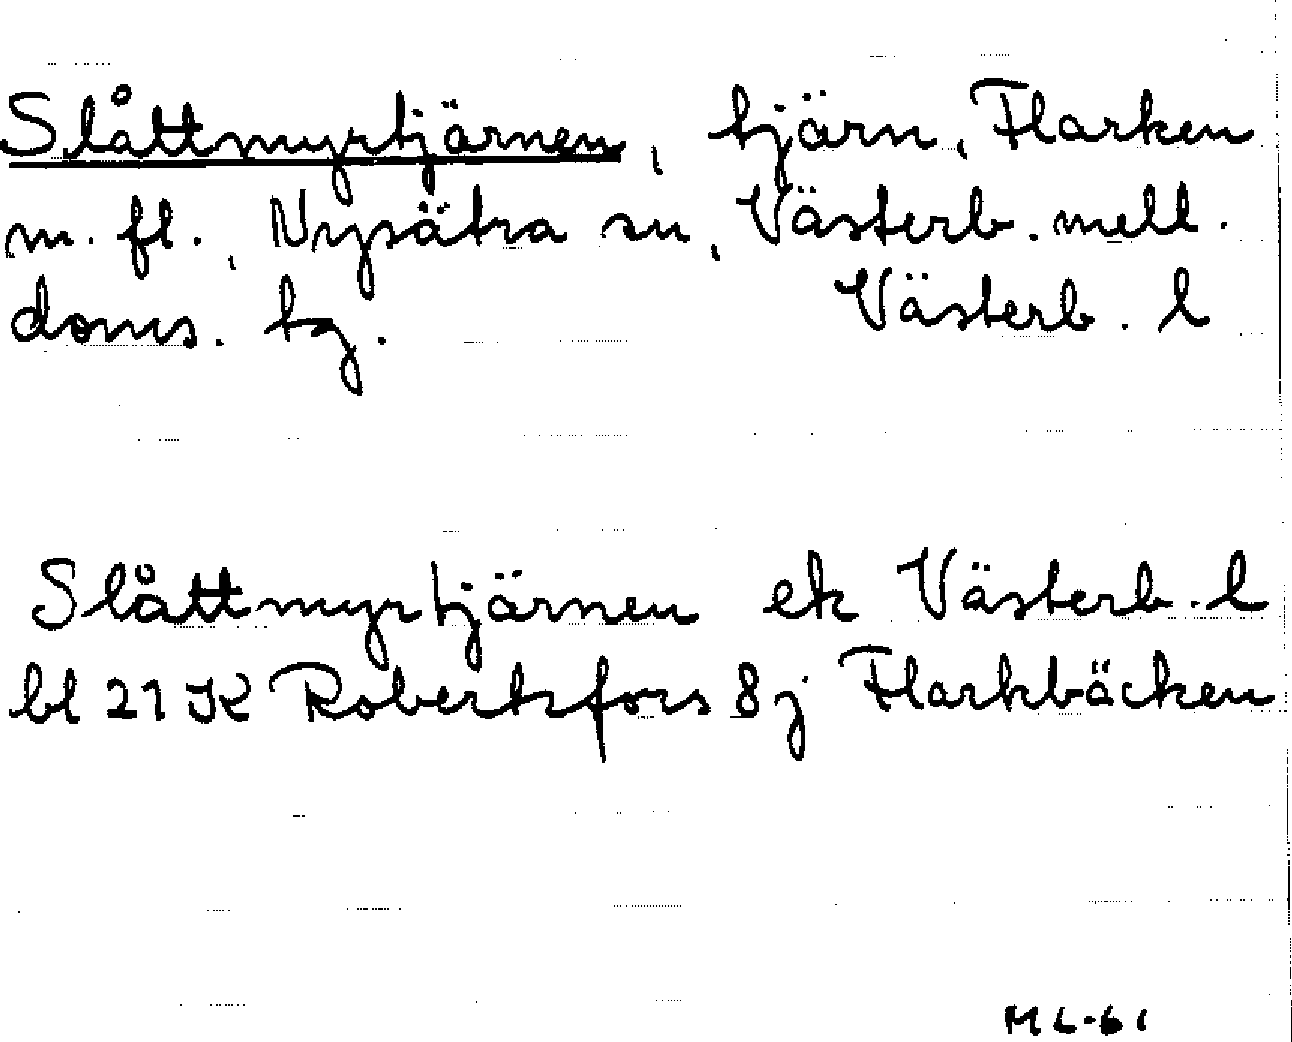 Slåttmyrtjärnen, tjärn, Flarken
m. fl., Nysätra sn, Västerb. mell.
doms. tg. Västerb. l
Slåttmyrtjärnen ek Västerb. l
bl 21 K Robertsfors 8 j Flarkbäcken
ML-61